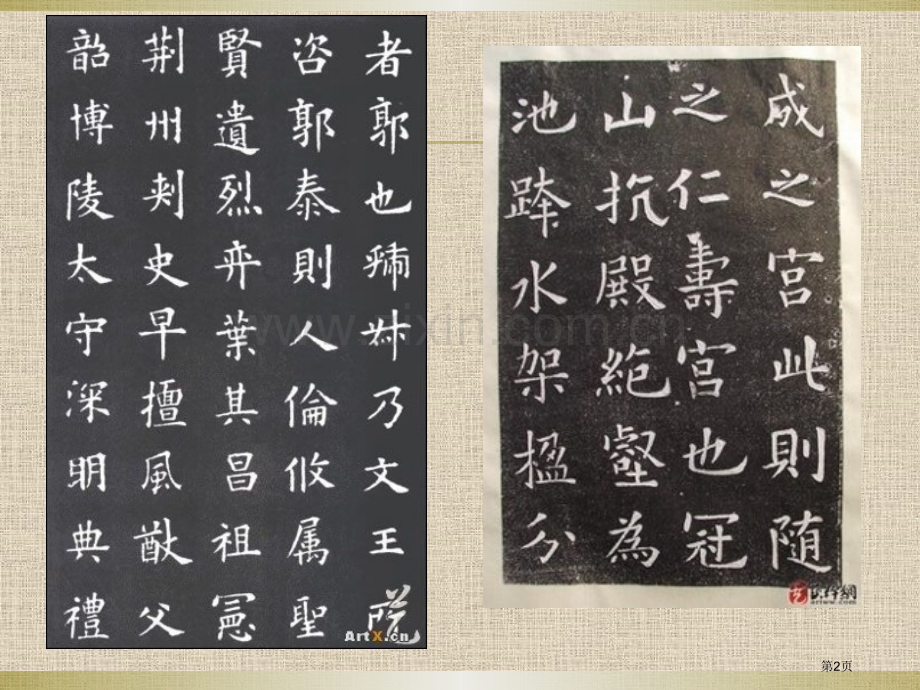 者郭也虢叔乃文王所
咨郭泰則人倫攸属聖
賢遺烈弈葉其昌祖憲
荆州刺史早擅風猷父
韶博陵太守深明典禮
ArtX.cn
成之宮此則随
之仁壽宮也冠
山抗殿絶壑為
池跨水架楹分
www.zixin.com.cn
第2页